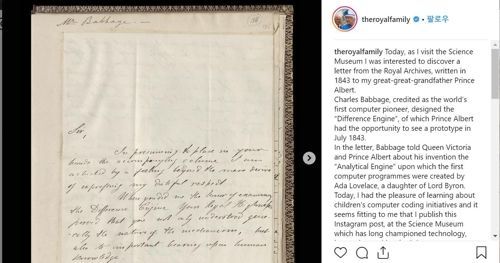 Mr Babbage.
Sir,
In presuming to place in your
hands the accompanying volume I am
actuated by a feeling beyond the mere desire
of expressing my dutiful respect.
When you did me the honor of examining
the Difference Engine Your Royal Highness
proved that you not only understood gene-
rally the nature of the mechanism, but
also its important bearing upon human
knowledge.
theroyalfamily
• 팔로우
theroyalfamily Today, as I visit the Science
Museum I was interested to discover a
letter from the Royal Archives, written in
1843 to my great-great-grandfather Prince
Albert.
Charles Babbage, credited as the world's
first computer pioneer, designed the
"Difference Engine", of which Prince Albert
had the opportunity to see a prototype in
July 1843.
In the letter, Babbage told Queen Victoria
and Prince Albert about his invention the
"Analytical Engine" upon which the first
computer programmes were created by
Ada Lovelace, a daughter of Lord Byron.
Today, I had the pleasure of learning about
children's computer coding initiatives and it
seems fitting to me that I publish this
Instagram post, at the Science Museum
which has long championed technology,